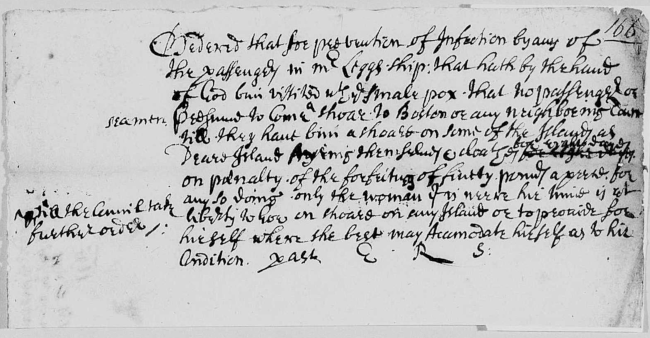 166
Ordered that for prevention of Infection by any of
the passengers in mr Leggs ship: that hath by the hand
of God bin visited wth ye smale pox that no passenger or
seamen presume to Come a shoare to Boston or any neighboring Town
till they have bin a shoare on some of the Islands as
Deare Island Ayering themselves & cloaths
on penalty of the forfeiture of pounds a peece for
any so doing only the woman yt is neere hir time is at
till the Councill take
liberty to Goe on shoare on any Island or to provide for
further order /:
hirself where she best may Acamodate hirself as to hir
Condition. past E R S: